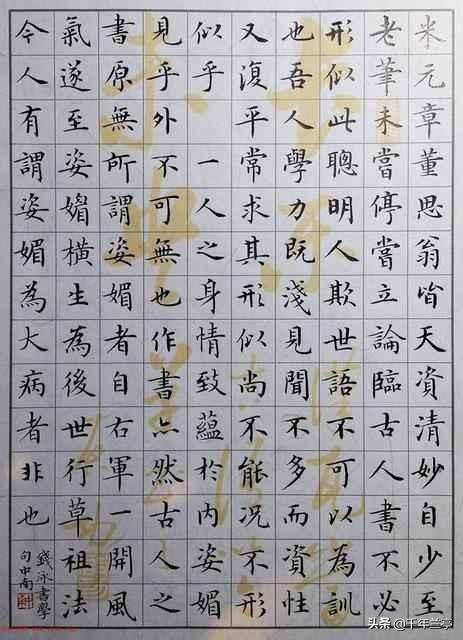 米元章董思翁皆天資清妙自少至
老筆未嘗停嘗立論臨古人書不必
形似此聰明人欺世語不可以為訓
也吾人學力既淺見聞不多而資性
又復平常求其形似尚不能况不形
似乎 一人之身情致蘊於內姿媚
見乎外不可無也作書亦然古人之
書原無所謂姿媚者自右軍一開風
氣遂至姿媚橫生為後世行草祖法
今人有謂姿媚為大病者非也
錢泳書學
句中南
头条 @千年兰亭